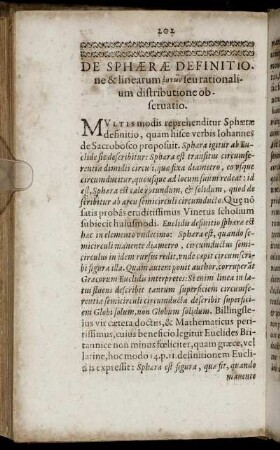 202
DE SPHÆRÆ DEFINITIO-
ne & linearum seu rationali-
um distributione ob-
seruatio.
MVLTIS modis reprehenditur Sphæræ
definitio, quam hisce verbis Iohannes
de Sacrobosco proposuit. Sphæra igitur ab Eu-
clide sic describitur: Sphæra est transitus circumfe-
rentia dimidii circuli, quæ fixa diametro, eousque
circumducitur, quousque ad locum suum redeat: id
est, Sphæra est tale rotundum, & solidum, quod de-
scribitur ab arcu semicirculi circumducto. Quę nō
satis probās eruditissimus Vinetus scholium
subiecit huiusmodi. Euclidis definitio sphæra est
hac in elemento vndecimo: Sphæra est, quando
semicirculi manente diametro, circumductus semi-
circulus in idem rursus redit, vnde cœpit circumscri-
bi figura illa. Quam autem ponit author, corruperāt
Græcorum Euclidis interpretes: Si enim linea in la-
tus fluens describit tantum superficiem circumfe-
rentia semicirculi circumducta describit superficiem
Globi solum, non Globum solidum. Billingsle-
ius vir cætera doctus, & Mathematicus peri-
tissimus, cuius beneficio legitur Euclides Bri-
tannice non minus fœliciter, quam græce, vel
larine, hoc modo 14. p. 11. definitionem Eucli-
dis expressit: Sphæra est figura, quæ fit, quando
manente